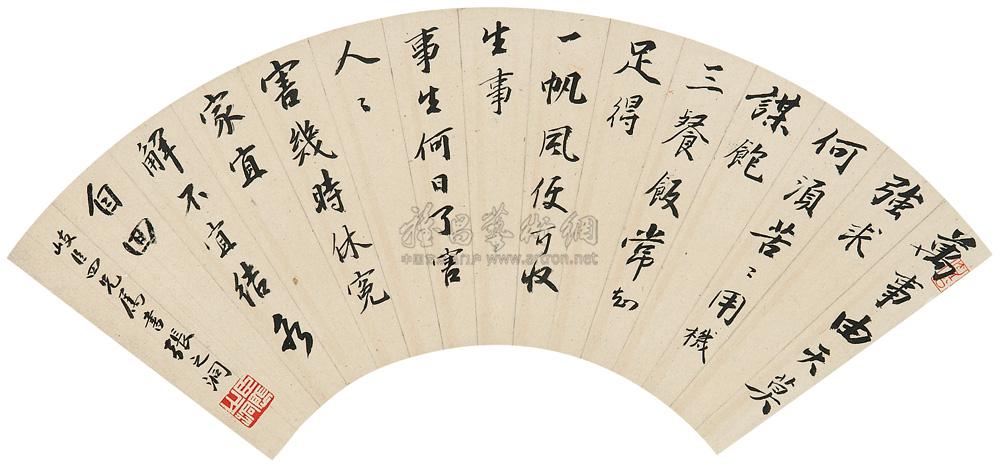 萬事由天莫
強求
何須苦〻用機
謀飽
三餐飯常知
足得
一帆風便可收
生事
事生何日了害
人〻
害幾時休冤
家宜
解不宜結各
自回
四兄屬書張之洞
雅昌藝術網
www.artron.net